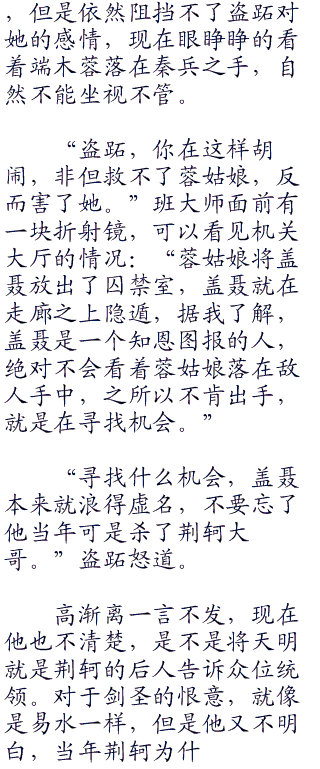 ，但是依然阻挡不了盗跖对
她的感情，现在眼睁睁的看
着端木蓉落在秦兵之手，自
然不能坐视不管。
“盗跖，你在这样胡
闹，非但救不了蓉姑娘，反
而害了她。”班大师面前有
一块折射镜，可以看见机关
大厅的情况：“蓉姑娘将盖
聂放出了囚禁室，盖聂就在
走廊之上隐遁，据我了解，
盖聂是一个知恩图报的人，
绝对不会看着蓉姑娘落在敌
人手中，之所以不肯出手，
就是在寻找机会。”
“寻找什么机会，盖聂
本来就浪得虚名，不要忘了
他当年可是杀了荆轲大
哥。”盗跖怒道。
高渐离一言不发，现在
他也不清楚，是不是将天明
就是荆轲的后人告诉众位统
领。对于剑圣的恨意，就像
是易水一样，但是他又不明
白，当年荆轲为什